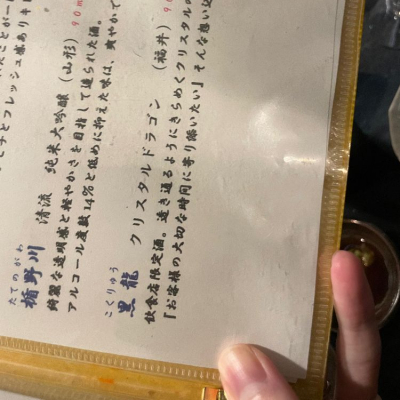 たてのがわ
楯野川 清流 純米大吟醸 (山形) 90m
綺麗な透明感と軽やかさを目指して造られた酒。
アルコール度数14%と低めに抑えた味は、爽やかで
こくりゅう
黒龍 クリスタルドラゴン (福井) 90
飲食店限定酒。透き通るようにきらめくクリスタルの
『お客様の大切な時間に寄り添いたい』そんな想い込